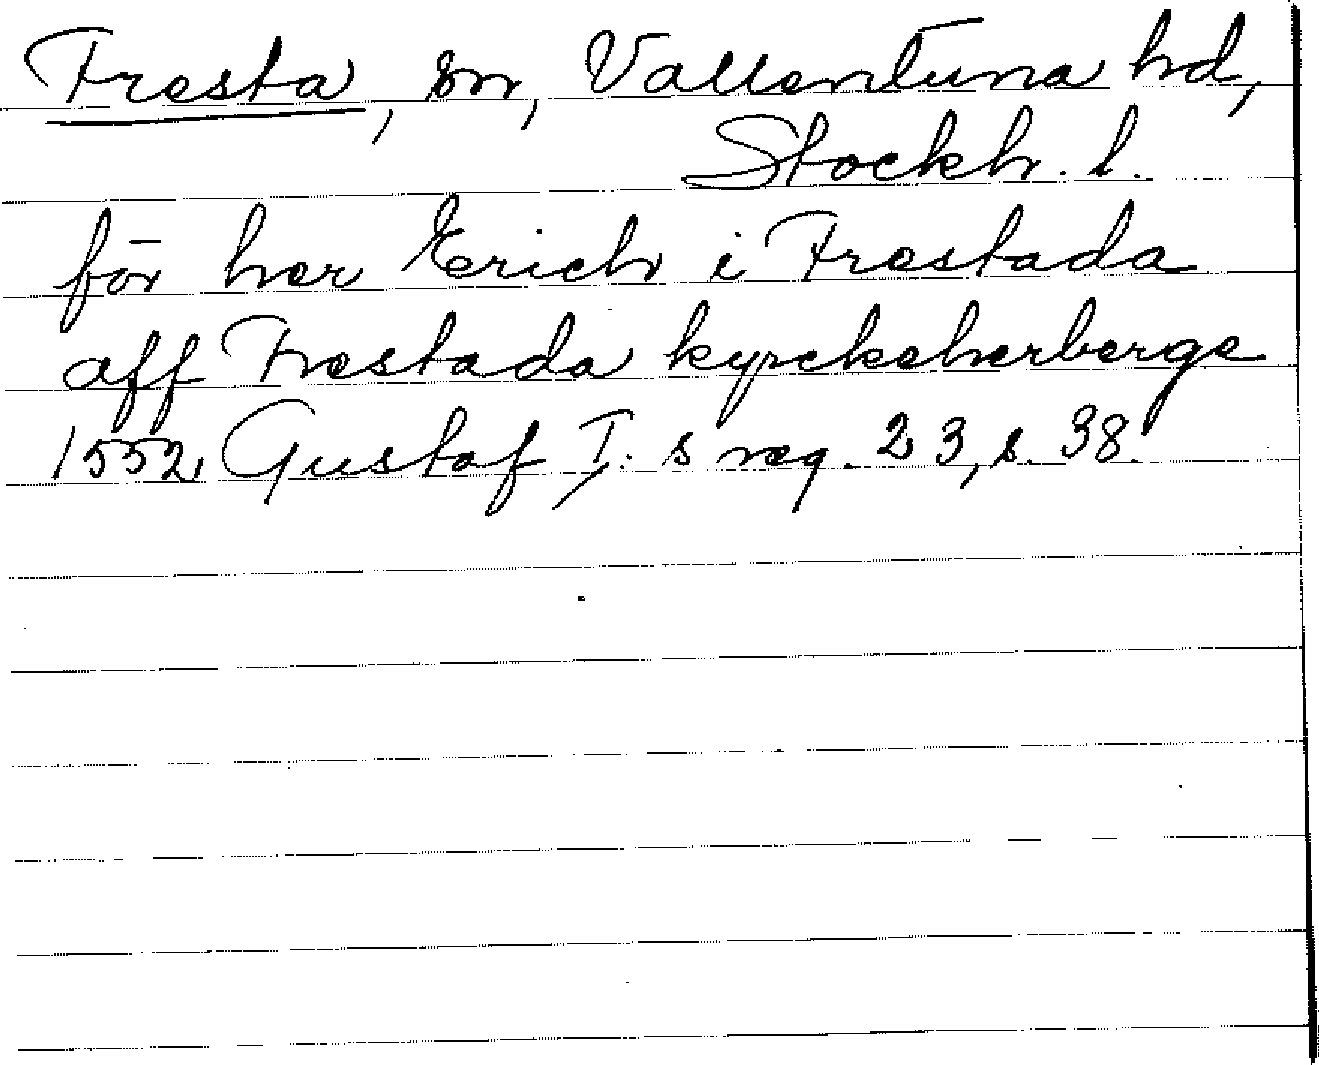 Fresta, sn, Vallentuna hd,
Stockh. l.
för her Erich i Frestada
aff Frestada kyrckeherberge
1552. Gustaf I: s reg. 23, s. 38.